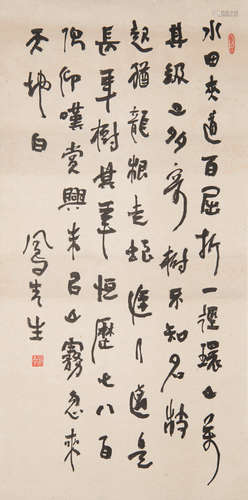 水田夾道百屈折一徑環山第
其級山多奇樹不知名特
起猶龍根走蛇逢人道是
長年樹其年恒歷七八百
俯仰嘆賞興未已山霧忽來
天地白
鳳子先生